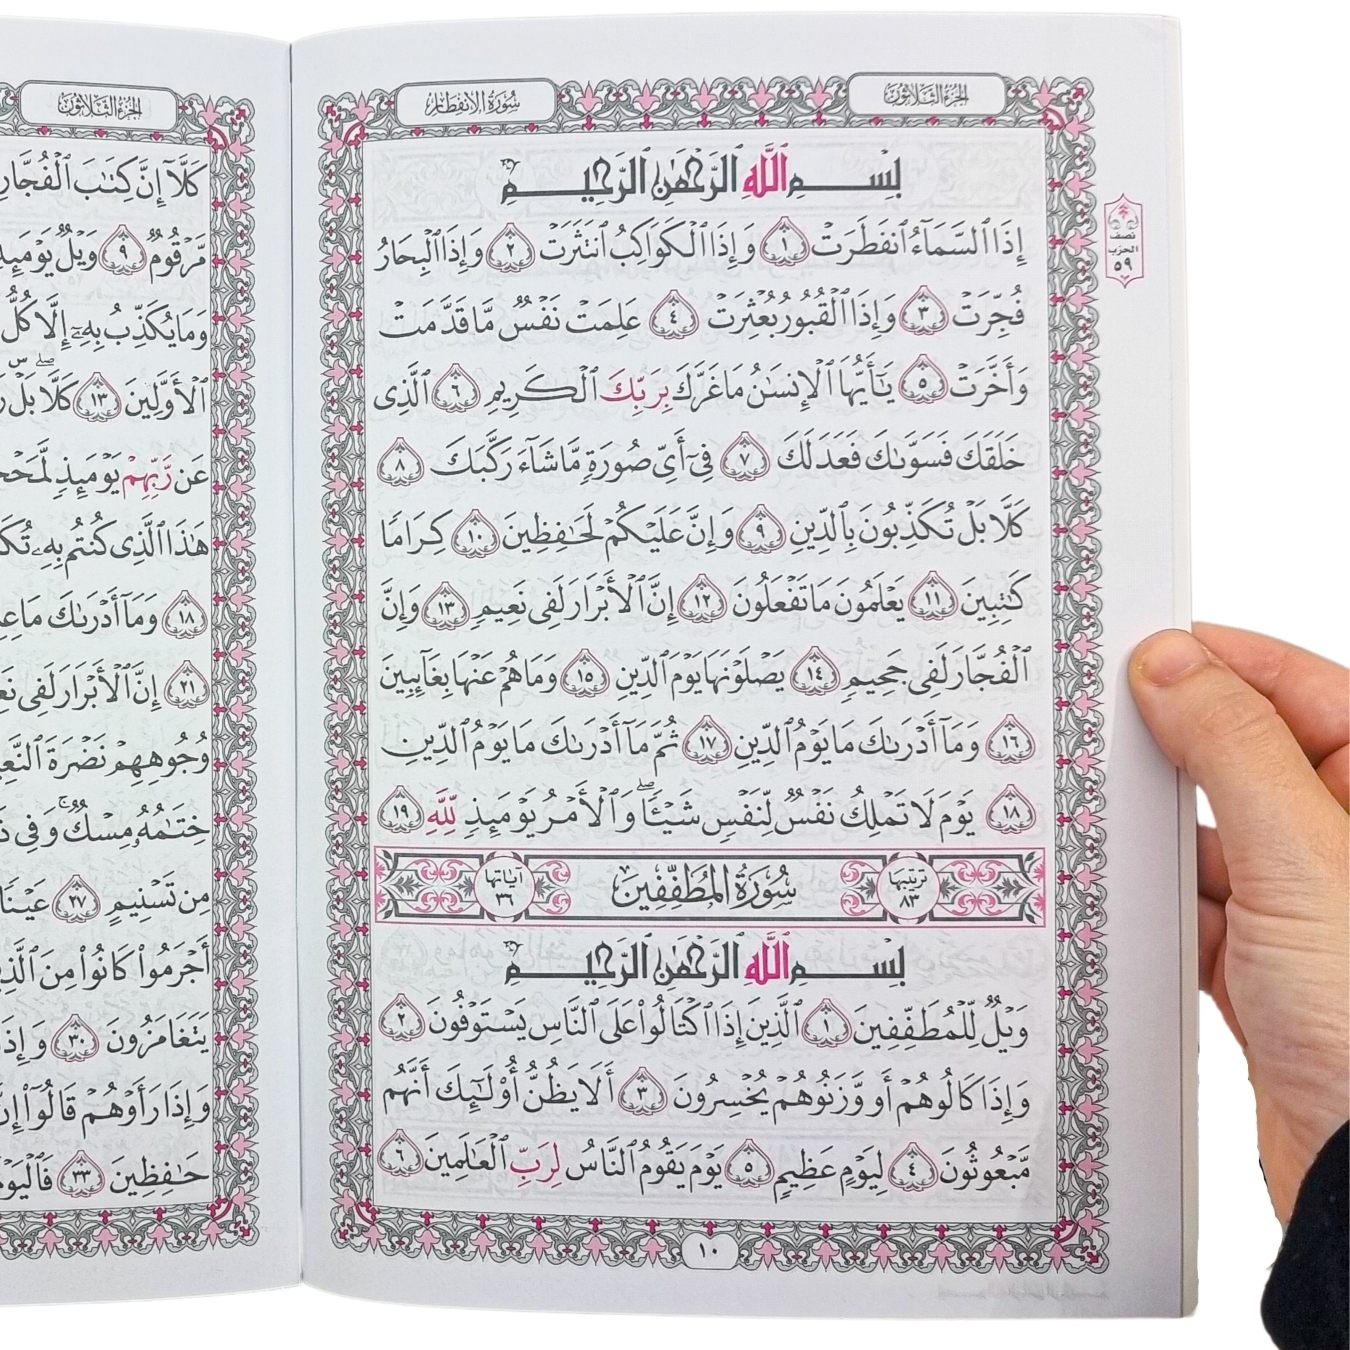 الجزء الثلاثون
سورة الانفطار
بِسْمِ ٱللَّهِ ٱلرَّحْمَٰنِ ٱلرَّحِيمِ
إِذَا ٱلسَّمَآءُ ٱنفَطَرَتْ ١ وَإِذَا ٱلْكَوَاكِبُ ٱنتَثَرَتْ ٢ وَإِذَا ٱلْبِحَارُ
فُجِّرَتْ ٣ وَإِذَا ٱلْقُبُورُ بُعْثِرَتْ ٤ عَلِمَتْ نَفْسٌ مَّا قَدَّمَتْ
وَأَخَّرَتْ ٥ يَٰٓأَيُّهَا ٱلْإِنسَٰنُ مَا غَرَّكَ بِرَبِّكَ ٱلْكَرِيمِ ٦ ٱلَّذِى
خَلَقَكَ فَسَوَّىٰكَ فَعَدَلَكَ ٧ فِىٓ أَىِّ صُورَةٍ مَّا شَآءَ رَكَّبَكَ ٨
كَلَّا بَلْ تُكَذِّبُونَ بِٱلدِّينِ ٩ وَإِنَّ عَلَيْكُمْ لَحَٰفِظِينَ ١٠ كِرَامًا
كَٰتِبِينَ ١١ يَعْلَمُونَ مَا تَفْعَلُونَ ١٢ إِنَّ ٱلْأَبْرَارَ لَفِى نَعِيمٍ ١٣ وَإِنَّ
ٱلْفُجَّارَ لَفِى جَحِيمٍ ١٤ يَصْلَوْنَهَا يَوْمَ ٱلدِّينِ ١٥ وَمَا هُمْ عَنْهَا بِغَآئِبِينَ
١٦ وَمَآ أَدْرَىٰكَ مَا يَوْمُ ٱلدِّينِ ١٧ ثُمَّ مَآ أَدْرَىٰكَ مَا يَوْمُ ٱلدِّينِ
١٨ يَوْمَ لَا تَمْلِكُ نَفْسٌ لِّنَفْسٍ شَيْـًٔا ۖ وَٱلْأَمْرُ يَوْمَئِذٍ لِّلَّهِ ١٩
ترتيبها ٨٣ سورة المطففين آياتها ٣٦
بِسْمِ ٱللَّهِ ٱلرَّحْمَٰنِ ٱلرَّحِيمِ
وَيْلٌ لِّلْمُطَفِّفِينَ ١ ٱلَّذِينَ إِذَا ٱكْتَالُوا۟ عَلَى ٱلنَّاسِ يَسْتَوْفُونَ ٢
وَإِذَا كَالُوهُمْ أَو وَّزَنُوهُمْ يُخْسِرُونَ ٣ أَلَا يَظُنُّ أُو۟لَٰٓئِكَ أَنَّهُم
مَّبْعُوثُونَ ٤ لِيَوْمٍ عَظِيمٍ ٥ يَوْمَ يَقُومُ ٱلنَّاسُ لِرَبِّ ٱلْعَٰلَمِينَ ٦
١٠
نصف
الحزب
٥٩
الجزء الثلاثون
كَلَّآ إِنَّ كِتَٰبَ ٱلْفُجَّارِ
مَّرْقُومٌ ٩ وَيْلٌ يَوْمَئِذٍ
وَمَا يُكَذِّبُ بِهِۦٓ إِلَّا كُلُّ
ٱلْأَوَّلِينَ ١٣ كَلَّا ۖ بَلْ
عَن رَّبِّهِمْ يَوْمَئِذٍ
هَٰذَا ٱلَّذِى كُنتُم بِهِۦ
١٨ وَمَآ أَدْرَىٰكَ مَا
٢١ إِنَّ ٱلْأَبْرَارَ لَفِى
وُجُوهِهِمْ نَضْرَةَ
خِتَٰمُهُۥ مِسْكٌ ۚ وَفِى
مِن تَسْنِيمٍ ٢٧ عَيْنًا
أَجْرَمُوا۟ كَانُوا۟ مِنَ
يَتَغَامَزُونَ ٣٠
وَإِذَا رَأَوْهُمْ قَالُوٓا۟
حَٰفِظِينَ ٣٣